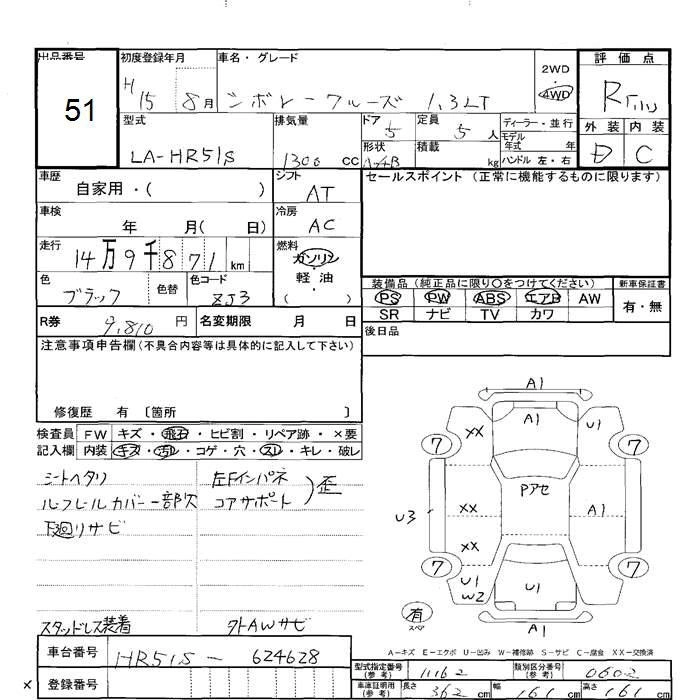 出品番号 初度登録年月 車名・グレード 2WD 評価点
51 H 15 8月 シボレークルーズ 1.3LT 4WD R
型式 排気量 ドア 定員 ディーラー・並行 外装 内装
LA-HR51S 1300 cc 5 5 人 モデル年式 年 D C
形状 積載 kg ハンドル 左・右
車歴 シフト セールスポイント (正常に機能するものに限ります)
自家用・( ) AT
車検 冷房
年 月( 日) AC
走行 燃料
14万9千871 km ガソリン
色 色替 色コード 軽油
ブラック ZJ3 ( )
装備品(純正品に限り○をつけてください) 新車保証書
PS PW ABS エアB AW 有・無
SR ナビ TV カワ
R券 9,810 円 名変期限 月 日 後日品
注意事項申告欄(不具合内容等は具体的に記入して下さい)
修復歴 有 〔箇所 〕
検査員 FW キズ・飛石・ヒビ割・リペア跡・×要
記入欄 内装 キズ・汚レ・コゲ・穴・スレ・キレ・破レ
シートヘタリ 左Fインパネ
ルーフレールカバー一部欠 コアサポート )歪
下廻リサビ
スタッドレス装着 外AWサビ
A1
XX A1 U1
7 7
Pアセ
U3 XX A1
XX
7 7
U1 U1
W2
有 スペア A1
A-キズ E-エクボ U-凹み W-補修跡 S-サビ C-腐食 XX-交換済
車台番号 HR51S-624628
型式指定番号(参考) 11162 類別区分番号(参考) 0602
× 登録番号
車庫証明用(参考) 長さ 362 cm 幅 161 cm 高さ 161 cm